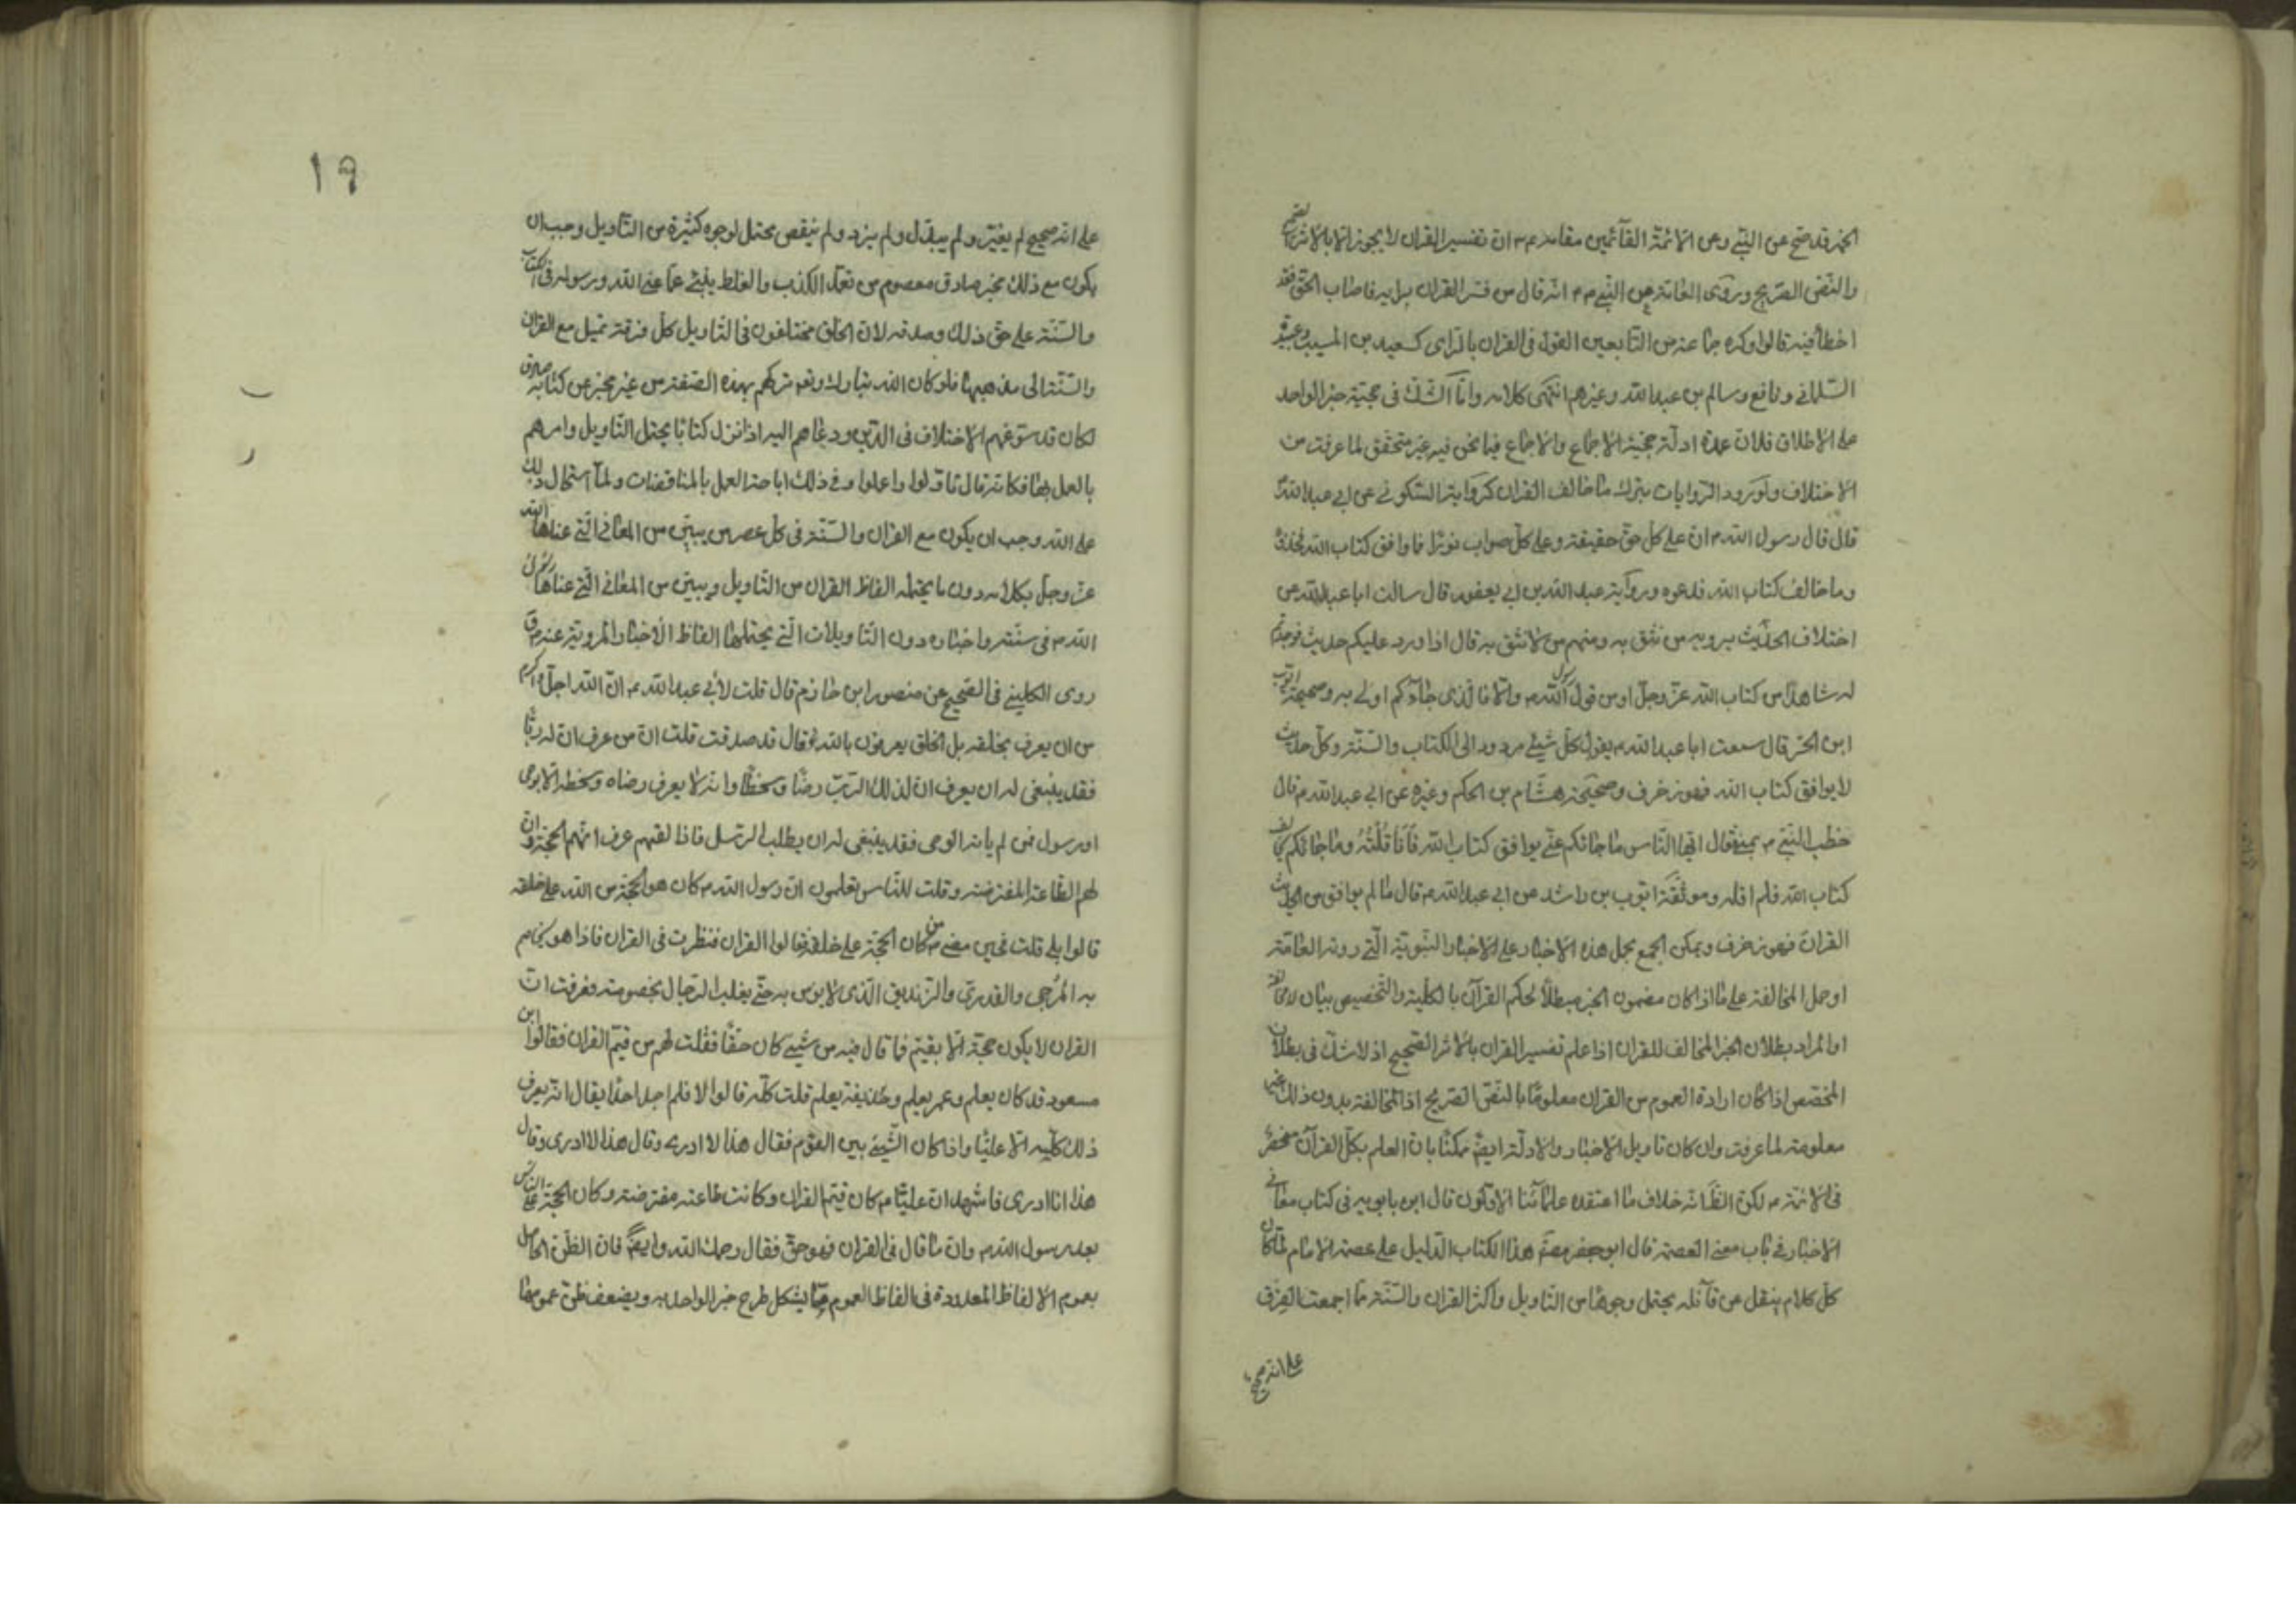 الخبر قد صح عن النبي وعن الائمة القآئمين مقامه ع م ان تفسير القران لا يجوز الا بالاثر الصحيح
والنص الصريح وروى العامة عن النبي ص م انه قال من فسر القران برايه فاصاب الحق فقد
اخطأ فيه قالوا وكره جماعة من التابعين القول في القران بالراى كسعيد بن المسيب وعبيدة
السلماني ونافع وسالم بن عبد الله وغيرهم انتهى كلامه واما الشك في حجية خبر الواحد
على الاطلاق فلان عمدة ادلة حجيته الاجماع والاجماع فيما نحن فيه غير متحقق لما عرفت من
الاختلاف ولورود الروايات بترك ما خالف القران كرواية السكوني عن ابي عبد الله
قال قال رسول الله ص ان على كل حق حقيقة وعلى كل صواب نورا فما وافق كتاب الله فخذوه
وما خالف كتاب الله فدعوه ورواية عبد الله بن ابي يعفور قال سالت ابا عبد الله عن
اختلاف الحديث يرويه من نثق به ومنهم من لا نثق به قال اذا ورد عليكم حديث فوجدتم
له شاهدا من كتاب الله عز وجل او من قول رسول الله ص والا فالذى جاءكم اولى به وصحيحة ايوب
ابن الحر قال سمعت ابا عبد الله ع يقول كل شيئ مردود الى الكتاب والسنة وكل حديث
لا يوافق كتاب الله فهو زخرف وصحيحة هشام بن الحكم وغيره عن ابي عبد الله ع قال
خطب النبي ص بمنى فقال ايها الناس ما جائكم عني يوافق كتاب الله فانا قلته وما جائكم يخالف
كتاب الله فلم اقله وموثقة ايوب بن راشد عن ابي عبد الله ع قال ما لم يوافق من الحديث
القران فهو زخرف ويمكن الجمع بحمل هذه الاخبار على الاخبار النبوية التي روته العامة
او حمل المخالفة على ما اذا كان مضمون الخبر مبطلا لحكم القران بالكلية والتخصيص بيان لا مخالفة
او المراد بطلان الخبر المخالف للقران اذا علم تفسير القران بالاثر الصحيح اذ لا شك في بطلان
المخصص اذا كان ارادة العموم من القران معلوما بالنص الصريح اذ المخالفة بدون ذلك غير
معلومة لما عرفت وان كان تاويل الاخبار والادلة ايضا ممكنا بان العلم بكل القران منحصر
في الائمة ع لكن الظ انه خلاف ما اعتقده علمائنا الاولون قال ابن بابويه في كتاب معاني
الاخبار في باب معنى العصمة قال ابو جعفر مصنف هذا الكتاب الدليل على عصمة الامام لما كان
كل كلام ينقل عن قآئله يحتمل وجوها من التاويل واكثر القران والسنة مما اجمعت الفرق
على انه صحيح
١٩
على انه صحيح لم يغير ولم يبدل ولم يزد ولم ينقص محتمل لوجوه كثيرة من التاويل وجب ان
يكون مع ذلك مخبر صادق معصوم من تعمد الكذب والغلط ينبئ عما عنى الله ورسوله في الكتاب
والسنة على حق ذلك وصدقه لان الخلق مختلفون في التاويل كل فرقة تميل مع القران
والسنة الى مذهبها فلو كان الله تبارك وتع تركهم بهذه الصفة من غير مخبر عن كتابه صادق
لكان قد سوغهم الاختلاف في الدين ودعاهم اليه اذ انزل كتابا يحتمل التاويل وامرهم
بالعمل بها فكانه قال تاولوا واعملوا وفي ذلك اباحة العمل بالمتناقضات ولما استحال ذلك
على الله وجب ان يكون مع القران والسنة في كل عصر من يبين من المعاني التي عناها الله
عز وجل بكلامه دون ما يحتمله الفاظ القران من التاويل ويبين من المعاني التي عناها رسول
الله ص في سنته واخباره دون التاويلات التي يحتملها الفاظ الاخبار المروية عنه
روى الكليني في الصحيح عن منصور ابن حازم قال قلت لابي عبد الله ع ان الله اجل واكرم
من ان يعرف بخلقه بل الخلق يعرفون بالله قال قد صدقت قلت ان من عرف ان له ربا
فقد ينبغي له ان يعرف ان لذلك الرب رضا وسخطا وانه لا يعرف رضاه وسخطه الا بوحى
او رسول فمن لم ياته الوحى فقد ينبغي له ان يطلب الرسل فاذا لقيهم عرف انهم الحجة وان
لهم الطاعة المفترضة وقلت للناس تعلمون ان رسول الله ص كان هو الحجة من الله على خلقه
قالوا بلى قلت فحين مضى ص من كان الحجة على خلقه فقالوا القران فنظرت في القران فاذا هو يخاصم
به المرجى والقدري والزنديق الذى لا يؤمن به حتى يغلب الرجال بخصومته فعرفت ان
القران لا يكون حجة الا بقيم فما قال فيه من شيئ كان حقا فقلت لهم من قيم القران فقالوا ابن
مسعود قد كان يعلم وعمر يعلم وحذيفة يعلم قلت كله قالوا لا فلم اجد احدا يقال انه يعرف
ذلك كله الا عليا واذا كان الشيئ بين القوم فقال هذا لا ادرى وقال هذا لا ادرى وقال
هذا انا ادرى فاشهد ان عليا ع كان قيم القران وكانت طاعته مفترضة وكان الحجة على الناس
بعد رسول الله ص وان ما قال في القران فهو حق فقال رحمك الله وايضا فان الظن الحاصل
بعموم الالفاظ المعدودة في الفاظ العموم مما يشكل طرح خبر الواحد به ويضعف ظن عمومها